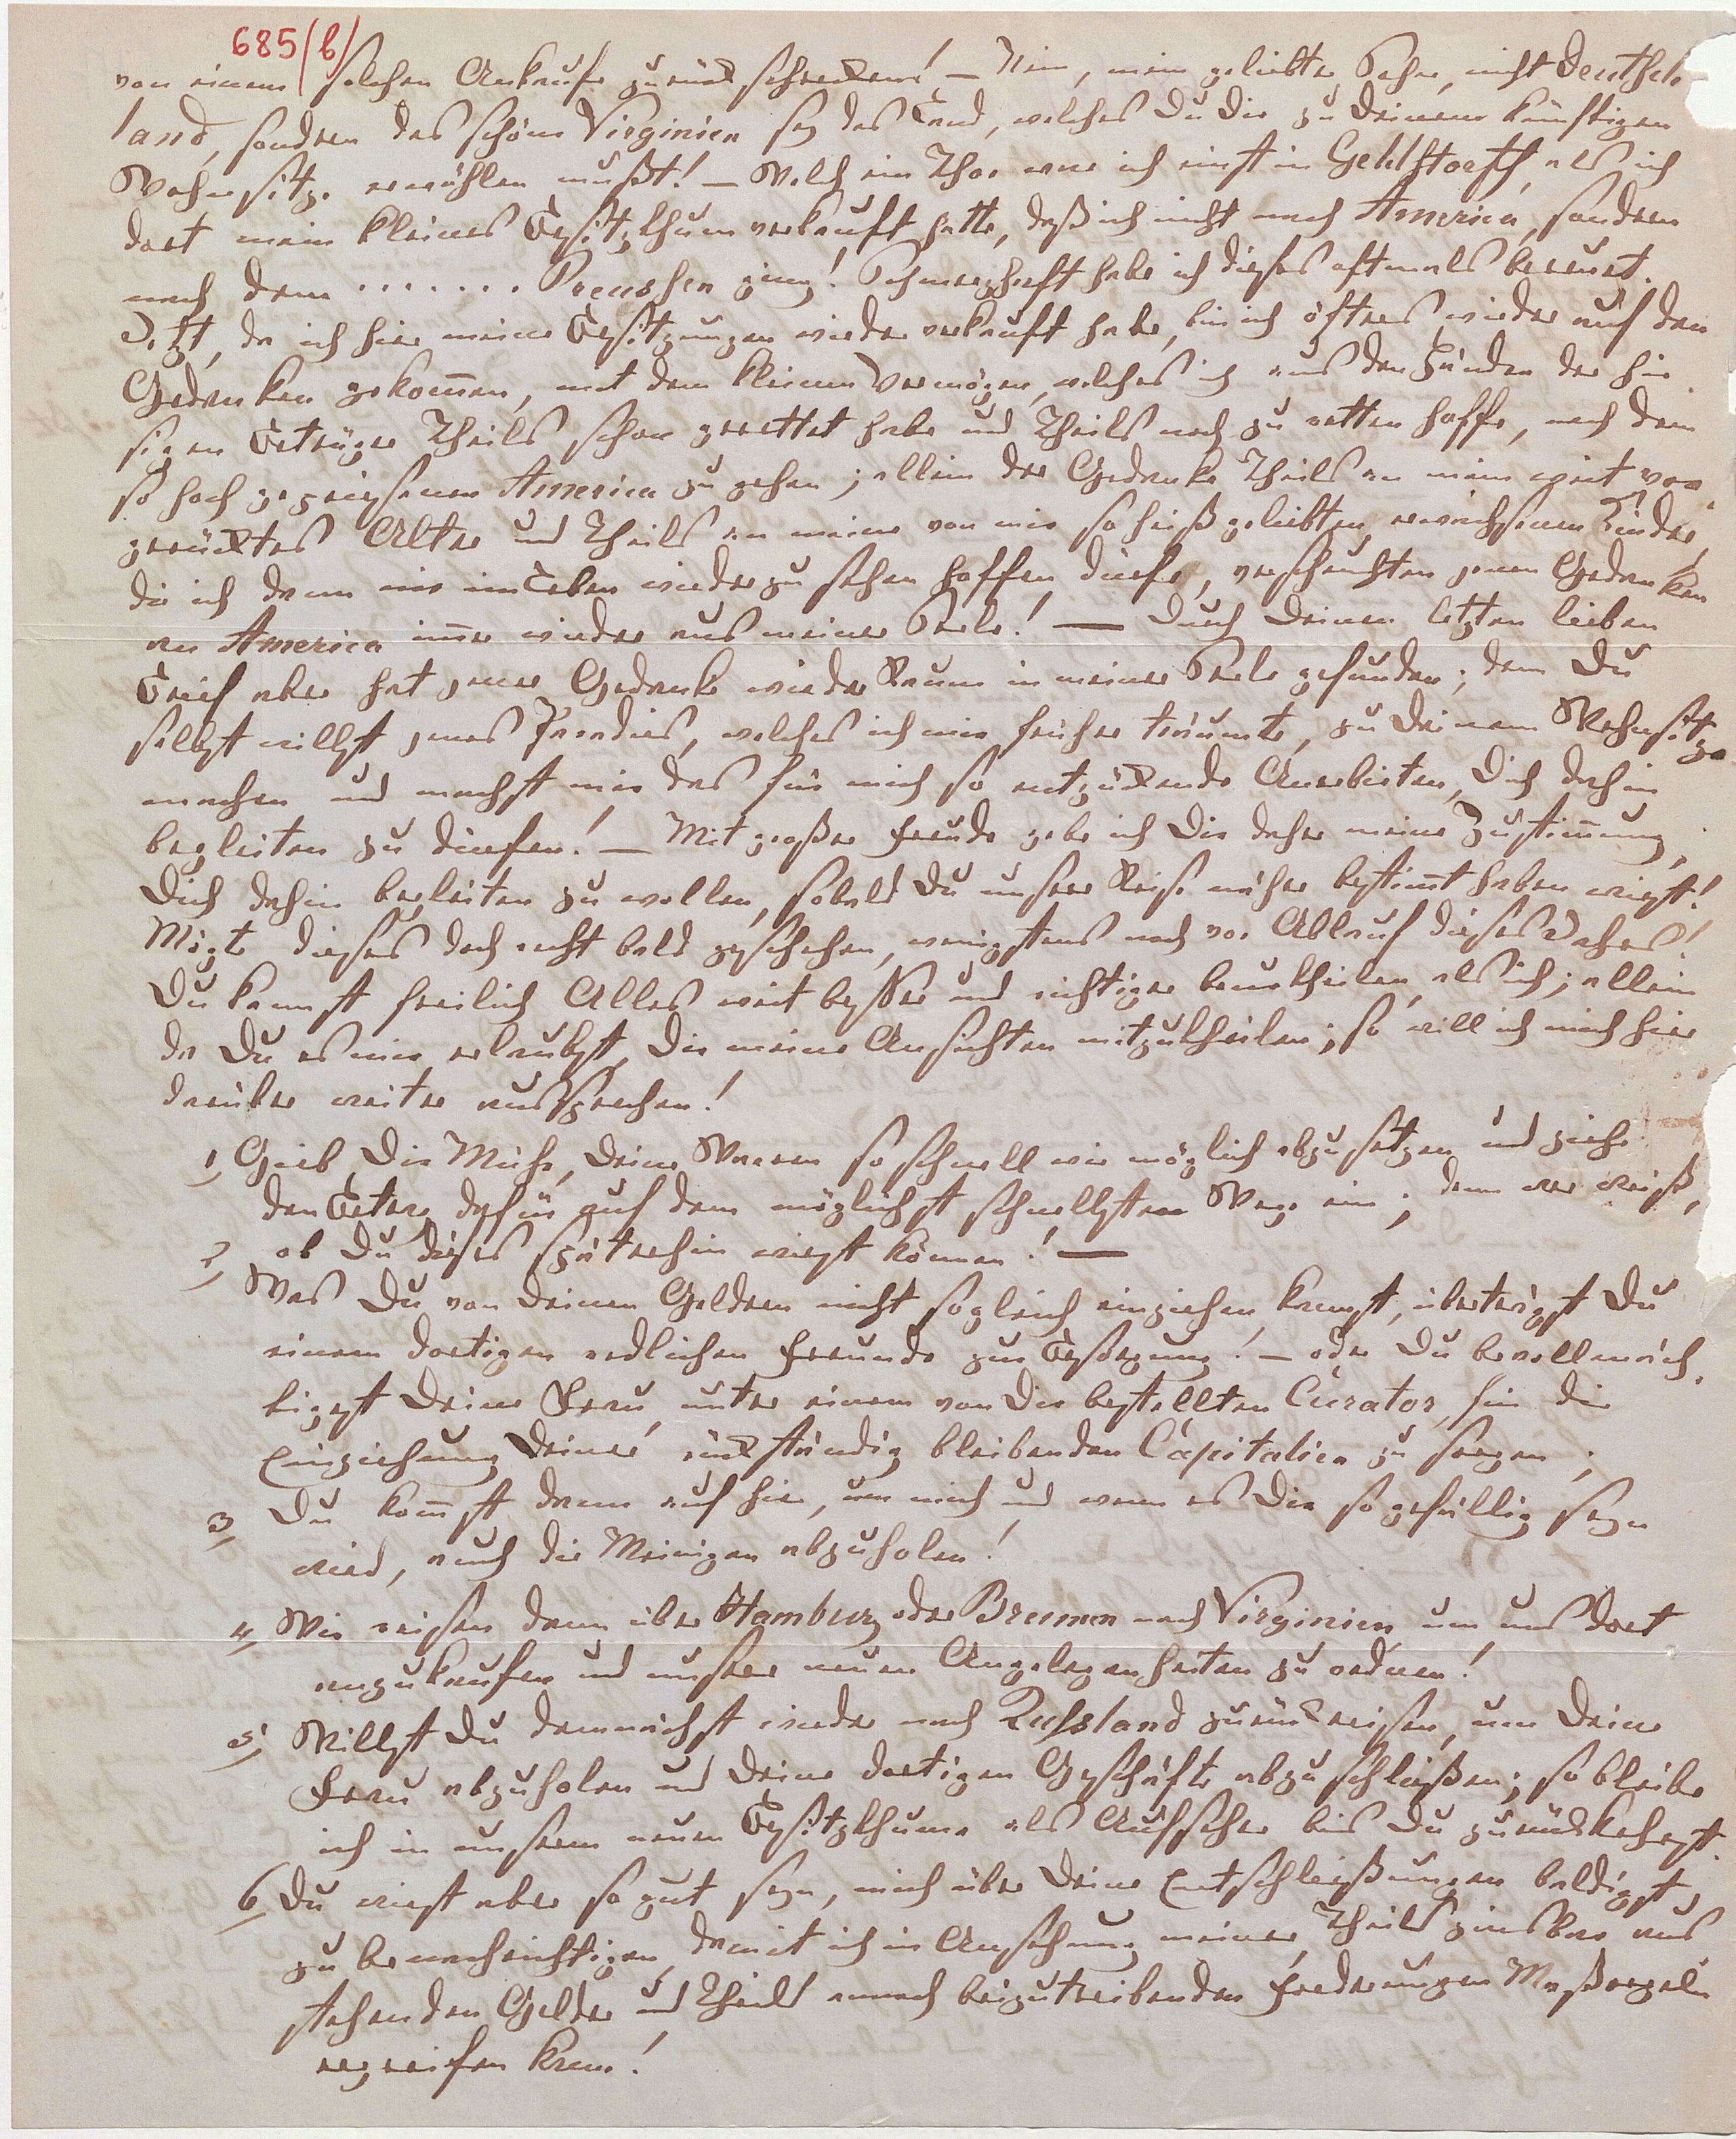 685/b/
von einem solchen Ankaufe zurückschrecken! — Nein, mein geliebter Sohn, nicht Deutsch-
land, sondern das schöne Virginien sey das Land, welches Du Dir zu Deinem künftigen
Wohnsitze erwählen mußt! — Welch ein Thor war ich einst in Gehlstorff, als ich
dort mein kleines Besitzthum verkauft hatte, daß ich nicht nach America, sondern
nach dem ....... Preushen ging! Schmerzhaft habe ich dieses oftmals bereuet.
Jetzt, da ich hier meine Besitzungen wieder verkauft habe, bin ich öfters wieder auf den
Gedanken gekom̄en, mit dem kleinen Vermögen, welches ich aus den Händen der hie-
sigen Betrüger Theils schon gerettet habe und Theils noch zu retten hoffe, nach dem
so hoch gepriesenen America zu gehen; allein der Gedanke Theils an mein weit vor-
gerücktes Alter und Theils an meine von mir so heiß geliebten, erwachsenen Kinder,
die ich dann nie im Leben wiederzusehen hoffen dürfe, verscheuchten jenen Gedanken
an America im̄er wieder aus meiner Seele! — Durch Deinen letzten lieben
Brief aber hat jener Gedanke wieder Raum in meiner Seele gefunden; denn Du
selbst willst jenes Paradies, welches ich mir früher träumte, zu Deinem Wohnsitze
machen und machst mir das für mich so entzückende Anerbieten, Dich dahin
begleiten zu dürfen! — Mit großer Freude gebe ich Dir daher meine Zustim̄ung,
Dich dahin begleiten zu wollen, sobald Du unsere Reise näher bestim̄t haben wirst!
Mögte dieses doch recht bald geschehen, wenigstens noch vor Ablauf dieses Jahres!
Du kannst freilich Alles weit besser und richtiger beurtheilen, als ich; allein
da Du es mir erlaubst, Dir meine Ansichten mitzutheilen; so will ich mich hier
darüber weiter aussprechen!
1, Gieb Dir Mühe, Deine Waaren so schnell wie möglich abzusetzen und ziehe
den Betrag dafür auf dem möglichst schnellsten Wege ein; denn wer weiß,
ob Du dieses späterhin wirst können! —
2, Was Du von Deinen Geldern nicht sogleich einziehen kannst, überträgst Du
einem dortigen redlichen Freunde zur Besorgung! — oder Du bevollmäch-
tigest Deine Frau, unter einem von Dir bestellten Curator, für die
Einziehung Deiner rückständig bleibenden Capitalien zu sorgen;
3, Du kom̄st dann auf hier, um mich und wenn es Dir so gefällig seyn
wird, auch die Meinigen abzuholen!
4, Wir reisen dann über Hamburg oder Bremen nach Virginien, um uns dort
anzukaufen und unsere neuen Angelegenheiten zu ordnen!
5, Willst Du demnächst wieder nach Russland zurückreisen, um Deine
Frau abzuholen und Deine dortigen Geschäfte abzuschließen; so bleibe
ich in unserem neuen Besitzthume als Aufseher bis Du zurückkehrst.
6, Du wirst aber so gut seyn, mich über Deine Entschließungen baldigst
zu benachrichtigen, damit ich in Ansehung meiner, Theils zinsbar aus
stehenden Gelder und Theils annoch beizutreibenden Forderungen Maßregeln
ergreifen kann!